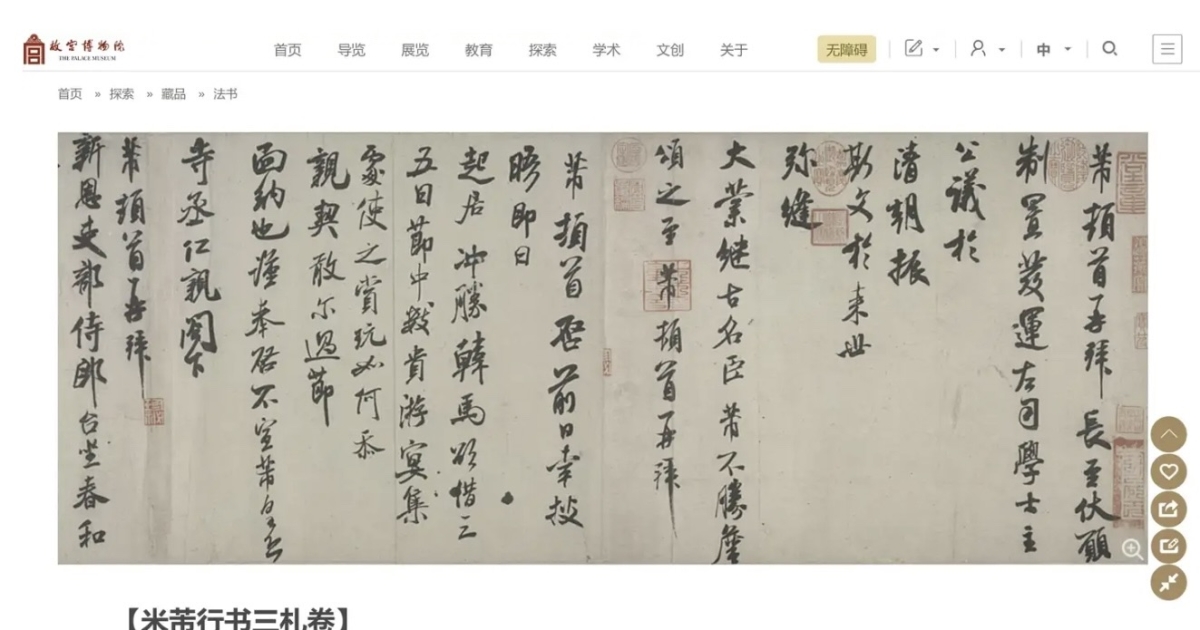 故宫博物院
THE PALACE MUSEUM
首页
导览
展览
教育
探索
学术
文创
关于
无障碍
中
首页 » 探索 » 藏品 » 法书
芾頓首再拜長至伏願
制置發運左司學士主
公議於
清朝振
斯文於來世
弥縫
大業継古名臣芾不勝
頌之至芾頓首再拜
芾頓首啓前日幸披
晤即日
起居冲勝韓馬欲借三
五日節中數貴游宴集
處使之賞玩如何忝
親契敢尔過節
面納也謹奉啓不宣芾
寺丞仁親閣下
芾頓首再拜
新恩吏部侍郎台坐春和
【米芾行书三札卷】